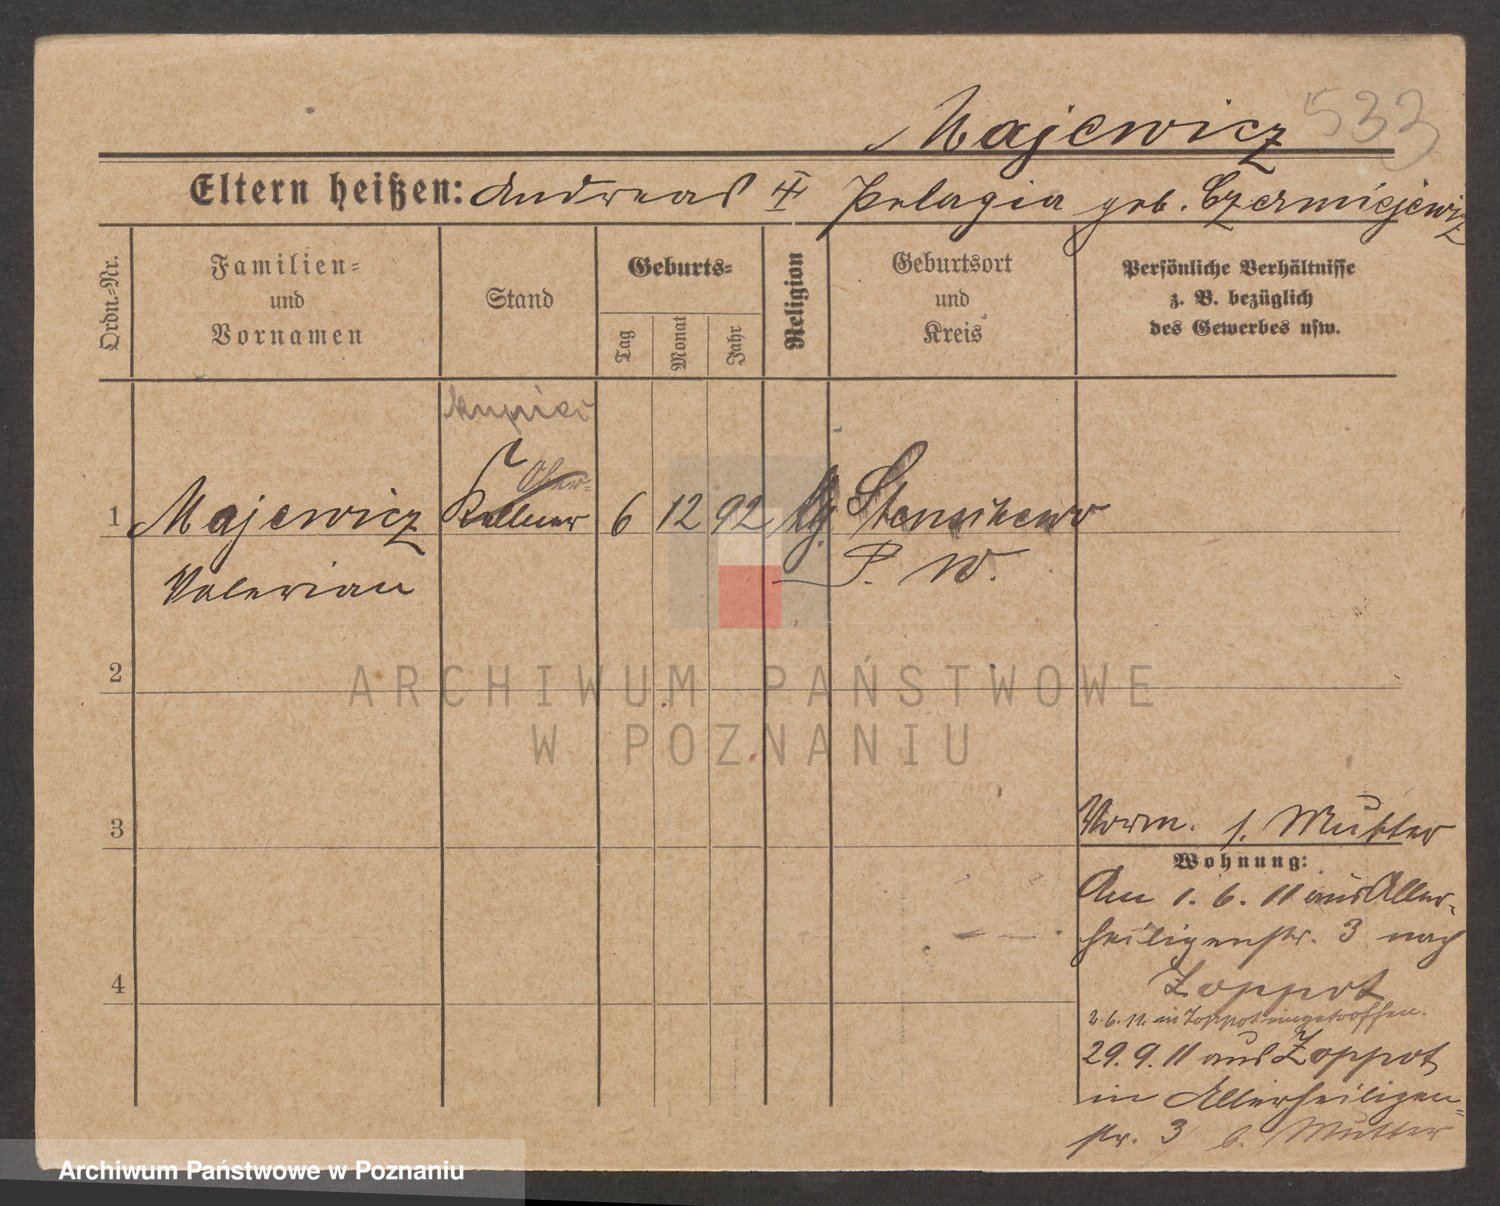 Majewicz 533
Eltern heißen: Andreas ‡ Pelagia geb. Czerniejewicz
Ordn.-Nr.
Familien-
und
Vornamen
Stand
Geburts-
Tag
Monat
Jahr
Religion
Geburtsort
und
Kreis
Persönliche Verhältnisse
z. B. bezüglich
des Gewerbes usw.
kupiec
Ober-
1 Majewicz Kellner 6 12 92 Stenschewo
Valerian P. W.
2
3
4
Vorm. s. Mutter
Wohnung:
Am 1. 6. 11 aus Aller-
heiligenstr. 3 nach
Zoppot
2.6.11. in Zoppot eingetroffen.
29. 9. 11 aus Zoppot
in Allerheiligen-
str. 3 b. Mutter
ARCHIWUM PAŃSTWOWE
W POZNANIU
Archiwum Państwowe w Poznaniu